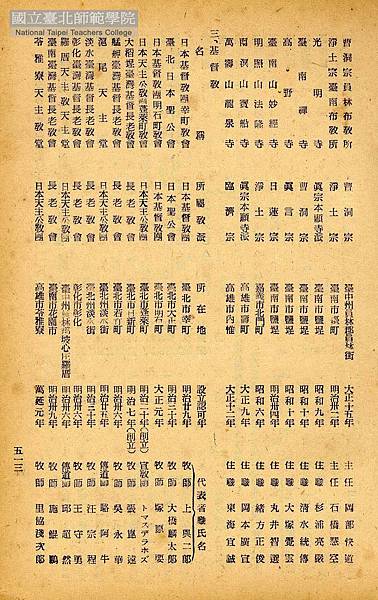 國立臺北師範學院
National Taipei Teachers College
曹洞宗員林布教所 曹洞宗 臺中州員林郡員林街 大正十五年 主任 岡部快道
淨土宗臺南布教所 淨土宗 臺南市 明治卅二年 主任 石橋慧空
光明寺 眞宗本願寺派 臺南市 昭和九年 住職 杉浦亮嚴
臺南禪寺 曹洞宗 臺南市 昭和十年 住職 清水統傳
高野寺 眞言宗 臺南市 昭和十年 住職 大塚覺雲
臺南山妙經寺 日蓮宗 臺南市 明治卅四年 住職 丸井智選
明照山法隆寺 淨土宗 嘉義市北門町 昭和六年 住職 緒方正俊
南溟山寶船寺 眞宗本願寺派 高雄市壽町 明治卅九年 住職 岡本廣宣
萬壽山龍泉寺 臨濟宗 高雄市內惟 大正十二年 住職 東海宜誠
三、基督教
名稱 所屬教派 所在地 設立認可年 代表者職氏名
日本基督教團幸町教會 日本基督教團 臺北市幸町 明治廿九年 牧師 上與二郎
臺北日本聖公會 日本聖公會 臺北市大正町 明治卅年 牧師 大橋麟太郎
日本基督教團明石町教會 日本基督教團 臺北市明石町 大正元年 牧師 塚原要
日本天主公教團蓬萊町教會 日本天主公教團 臺北市蓬萊町 明治二十年(創立) 宣教師 トマスデラホズ
大稻埕臺灣基督長老教會 長老教會 臺北市日新町 明治七年(創立) 牧師 張崑遠
艋舺臺灣基督長老教會 長老教會 臺北市若竹町 明治卅六年 牧師 吳永華
滬尾天主堂 日本天主公教團 臺北州淡水街 明治廿五年 傳道師 駱阿牛
淡水臺灣基督長老教會 長老教會 臺北州淡水街 明治三十年 牧師 汪宗程
彰化臺灣基督長老教會 長老教會 彰化市彰化 明治卅六年 牧師 王守勇
羅厝天主教堂 日本天主公教團 臺中州員林郡坡心庄羅厝 明治卅六年 傳道師 邱超然
臺南臺灣基督長老教會 長老教會 臺南市花園町 明治卅九年 牧師 施鯤鵬
苓雅寮天主教堂 日本天主公教團 高雄市苓雅寮 萬延元年 牧師 里脇淺次郎
五一三